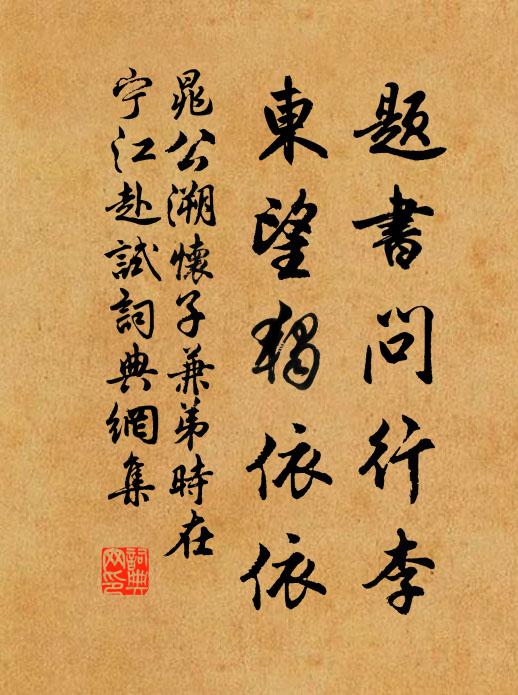 题書問行李
東望獨依依
晁公溯懷子兼弟時在
宁江赴試詞典網集
詞典网印